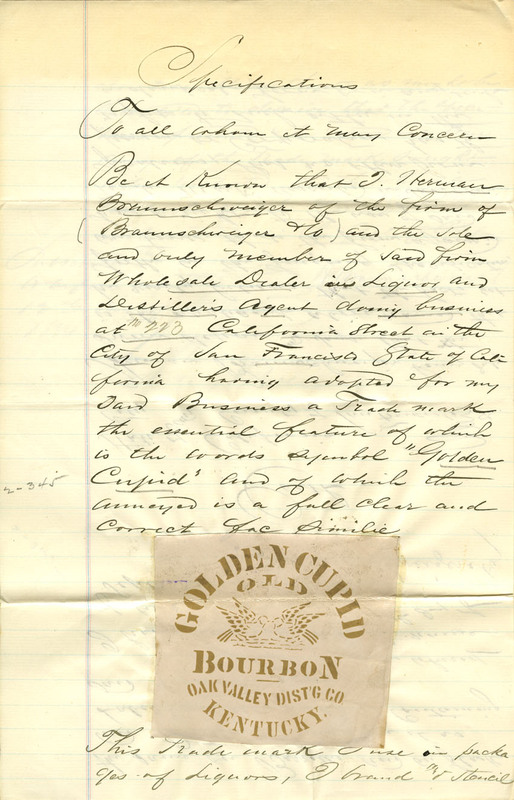 Specifications
To all whom it may Concern
Be it Known that I. Herman
Braunschweiger of the firm of
(Braunschweiger & Co) and the sole
and only member of said firm
Wholesale Dealer in Liquor and
Distiller's Agent doing business
at No 223 California Street in the
City of San Francisco State of Cali
fornia having adopted for my
said Business a Trade mark
the essential feature of which
is the words symbol "Golden
Cupid" and of which the
annexed is a full clear and
Correct fac Similie
2-345
GOLDEN CUPID
OLD
BOURBON
OAK VALLEY DIST'G CO
KENTUCKY.
This Trade mark I use on packa
ges of Liquors, I brand or stencil